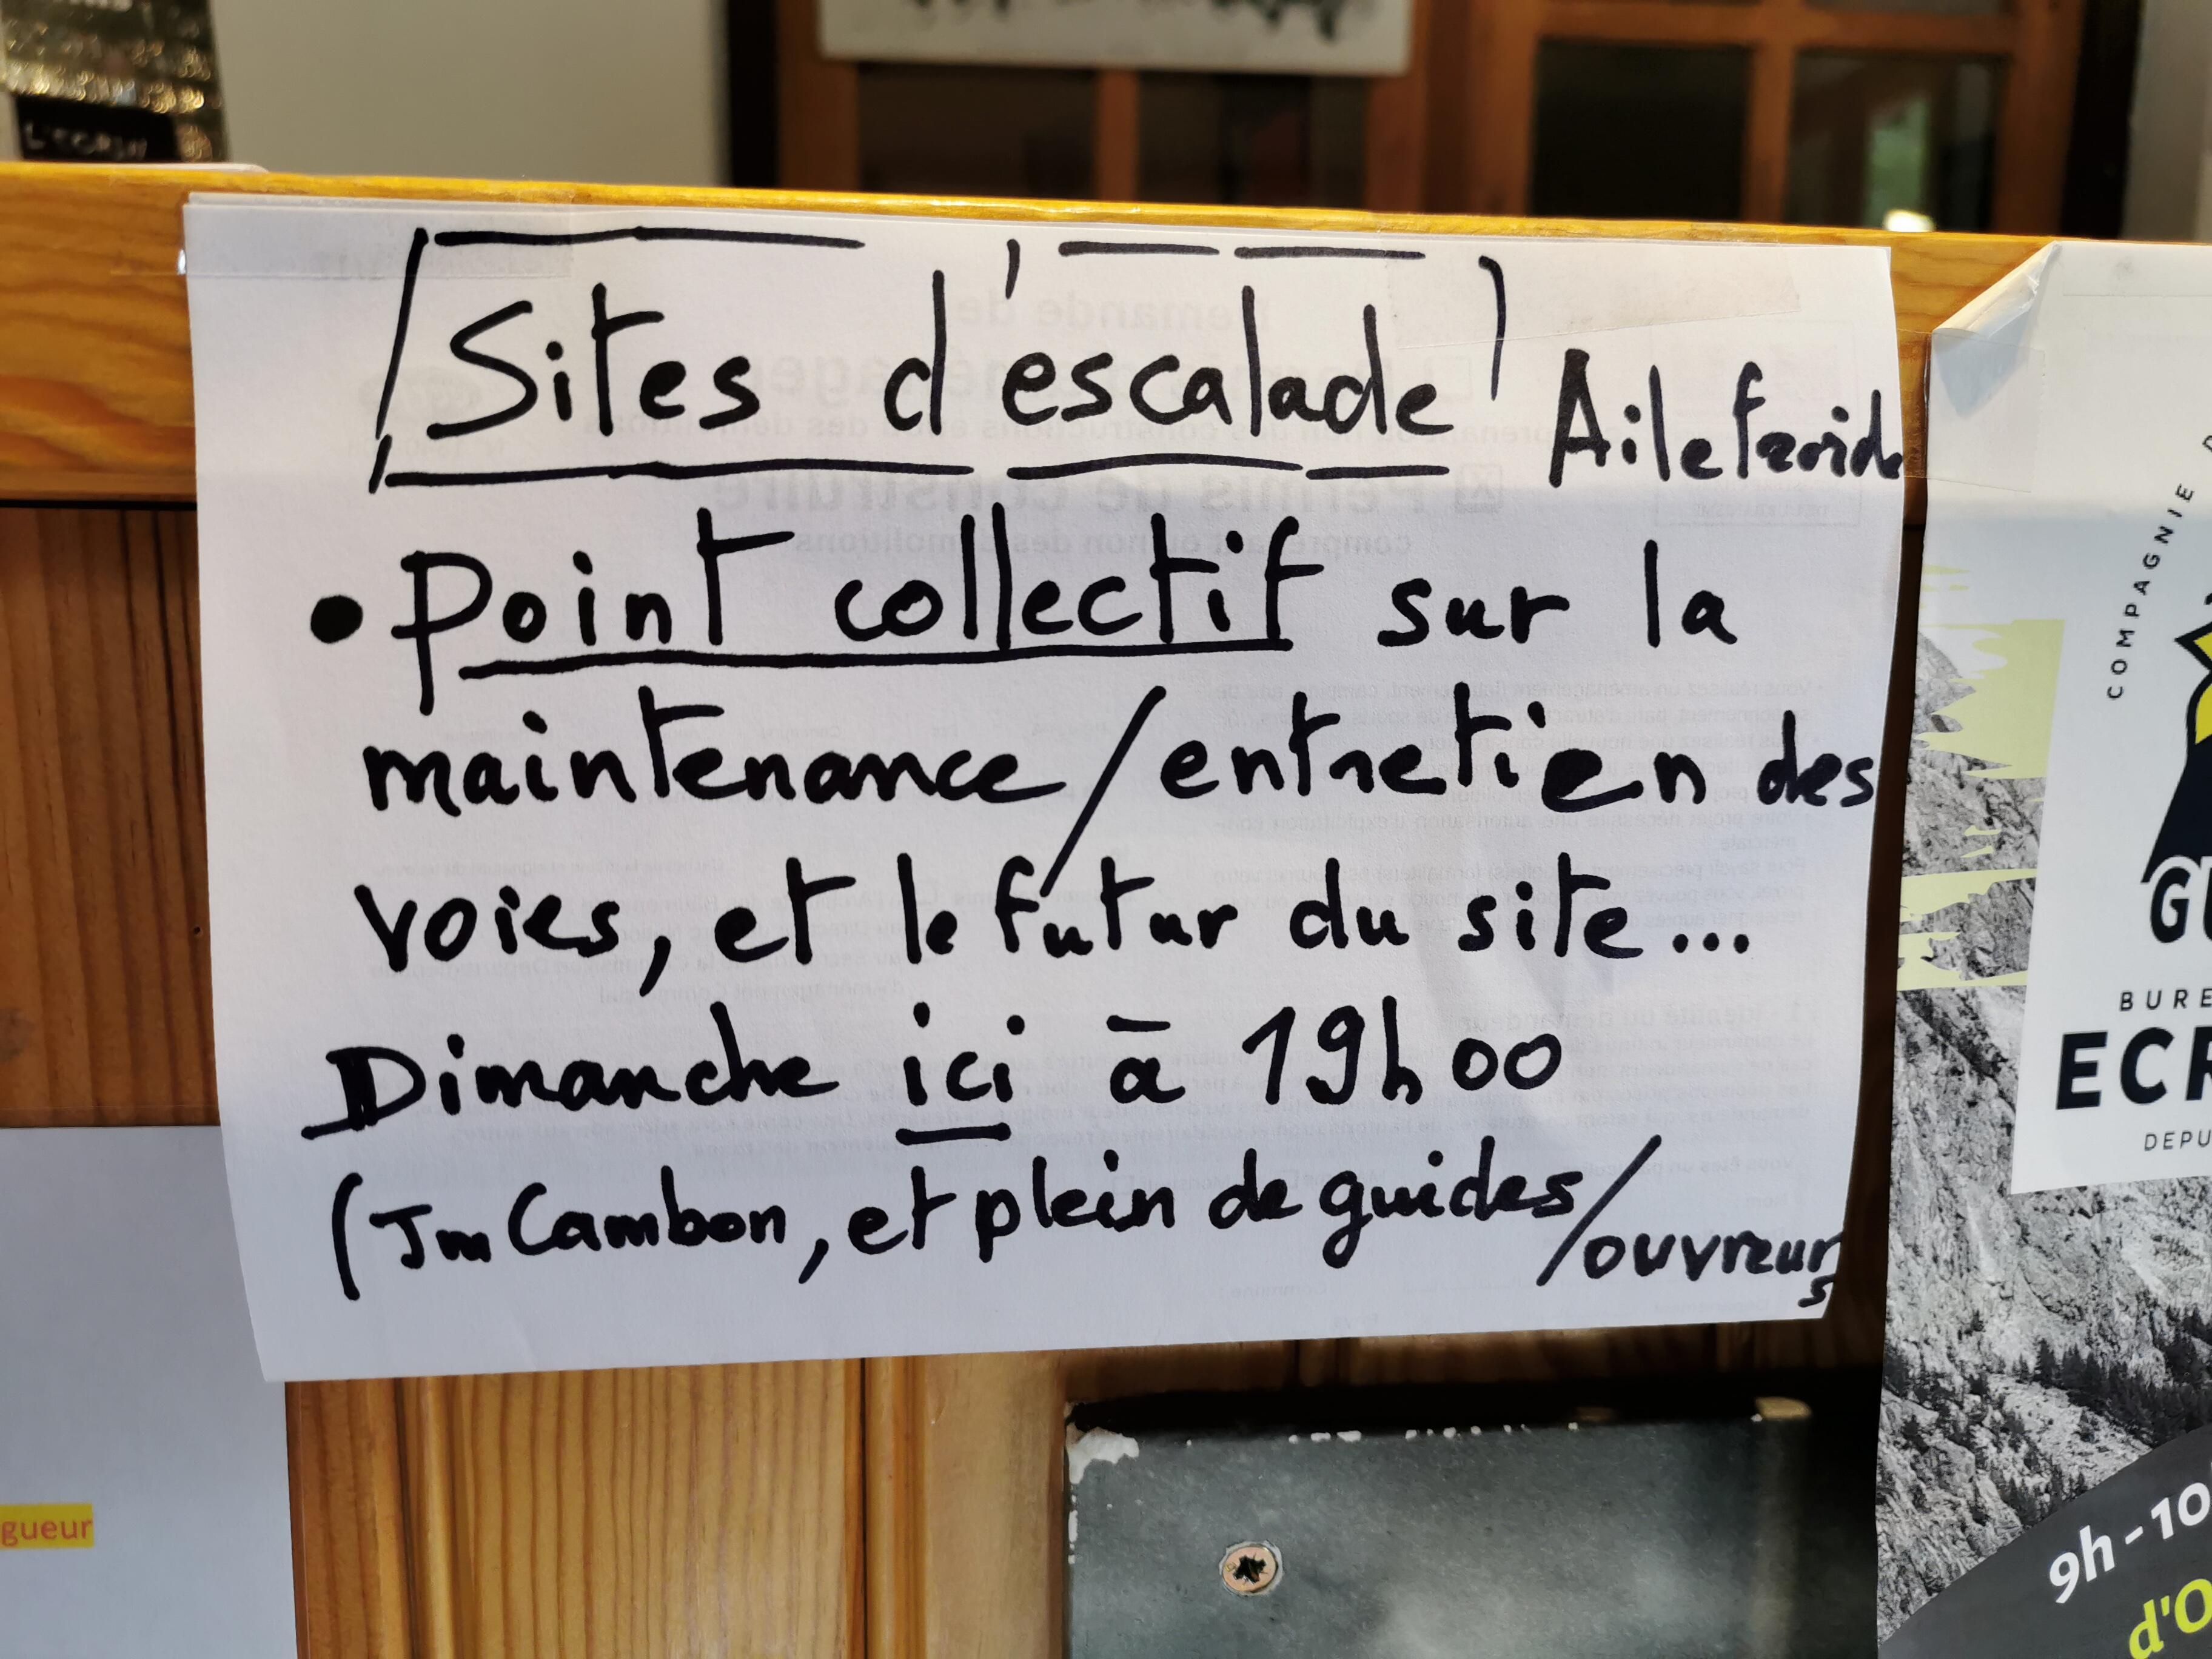 L'ECRIN
Sites d'escalade Ailefroide
• Point collectif sur la
maintenance/entretien des
voies, et le futur du site...
Dimanche ici à 19h00
(Jm Cambon, et plein de guides/ouvreurs
COMPAGNIE
GU
BURE
ECR
DEPU
9h-10
d'O
gueur